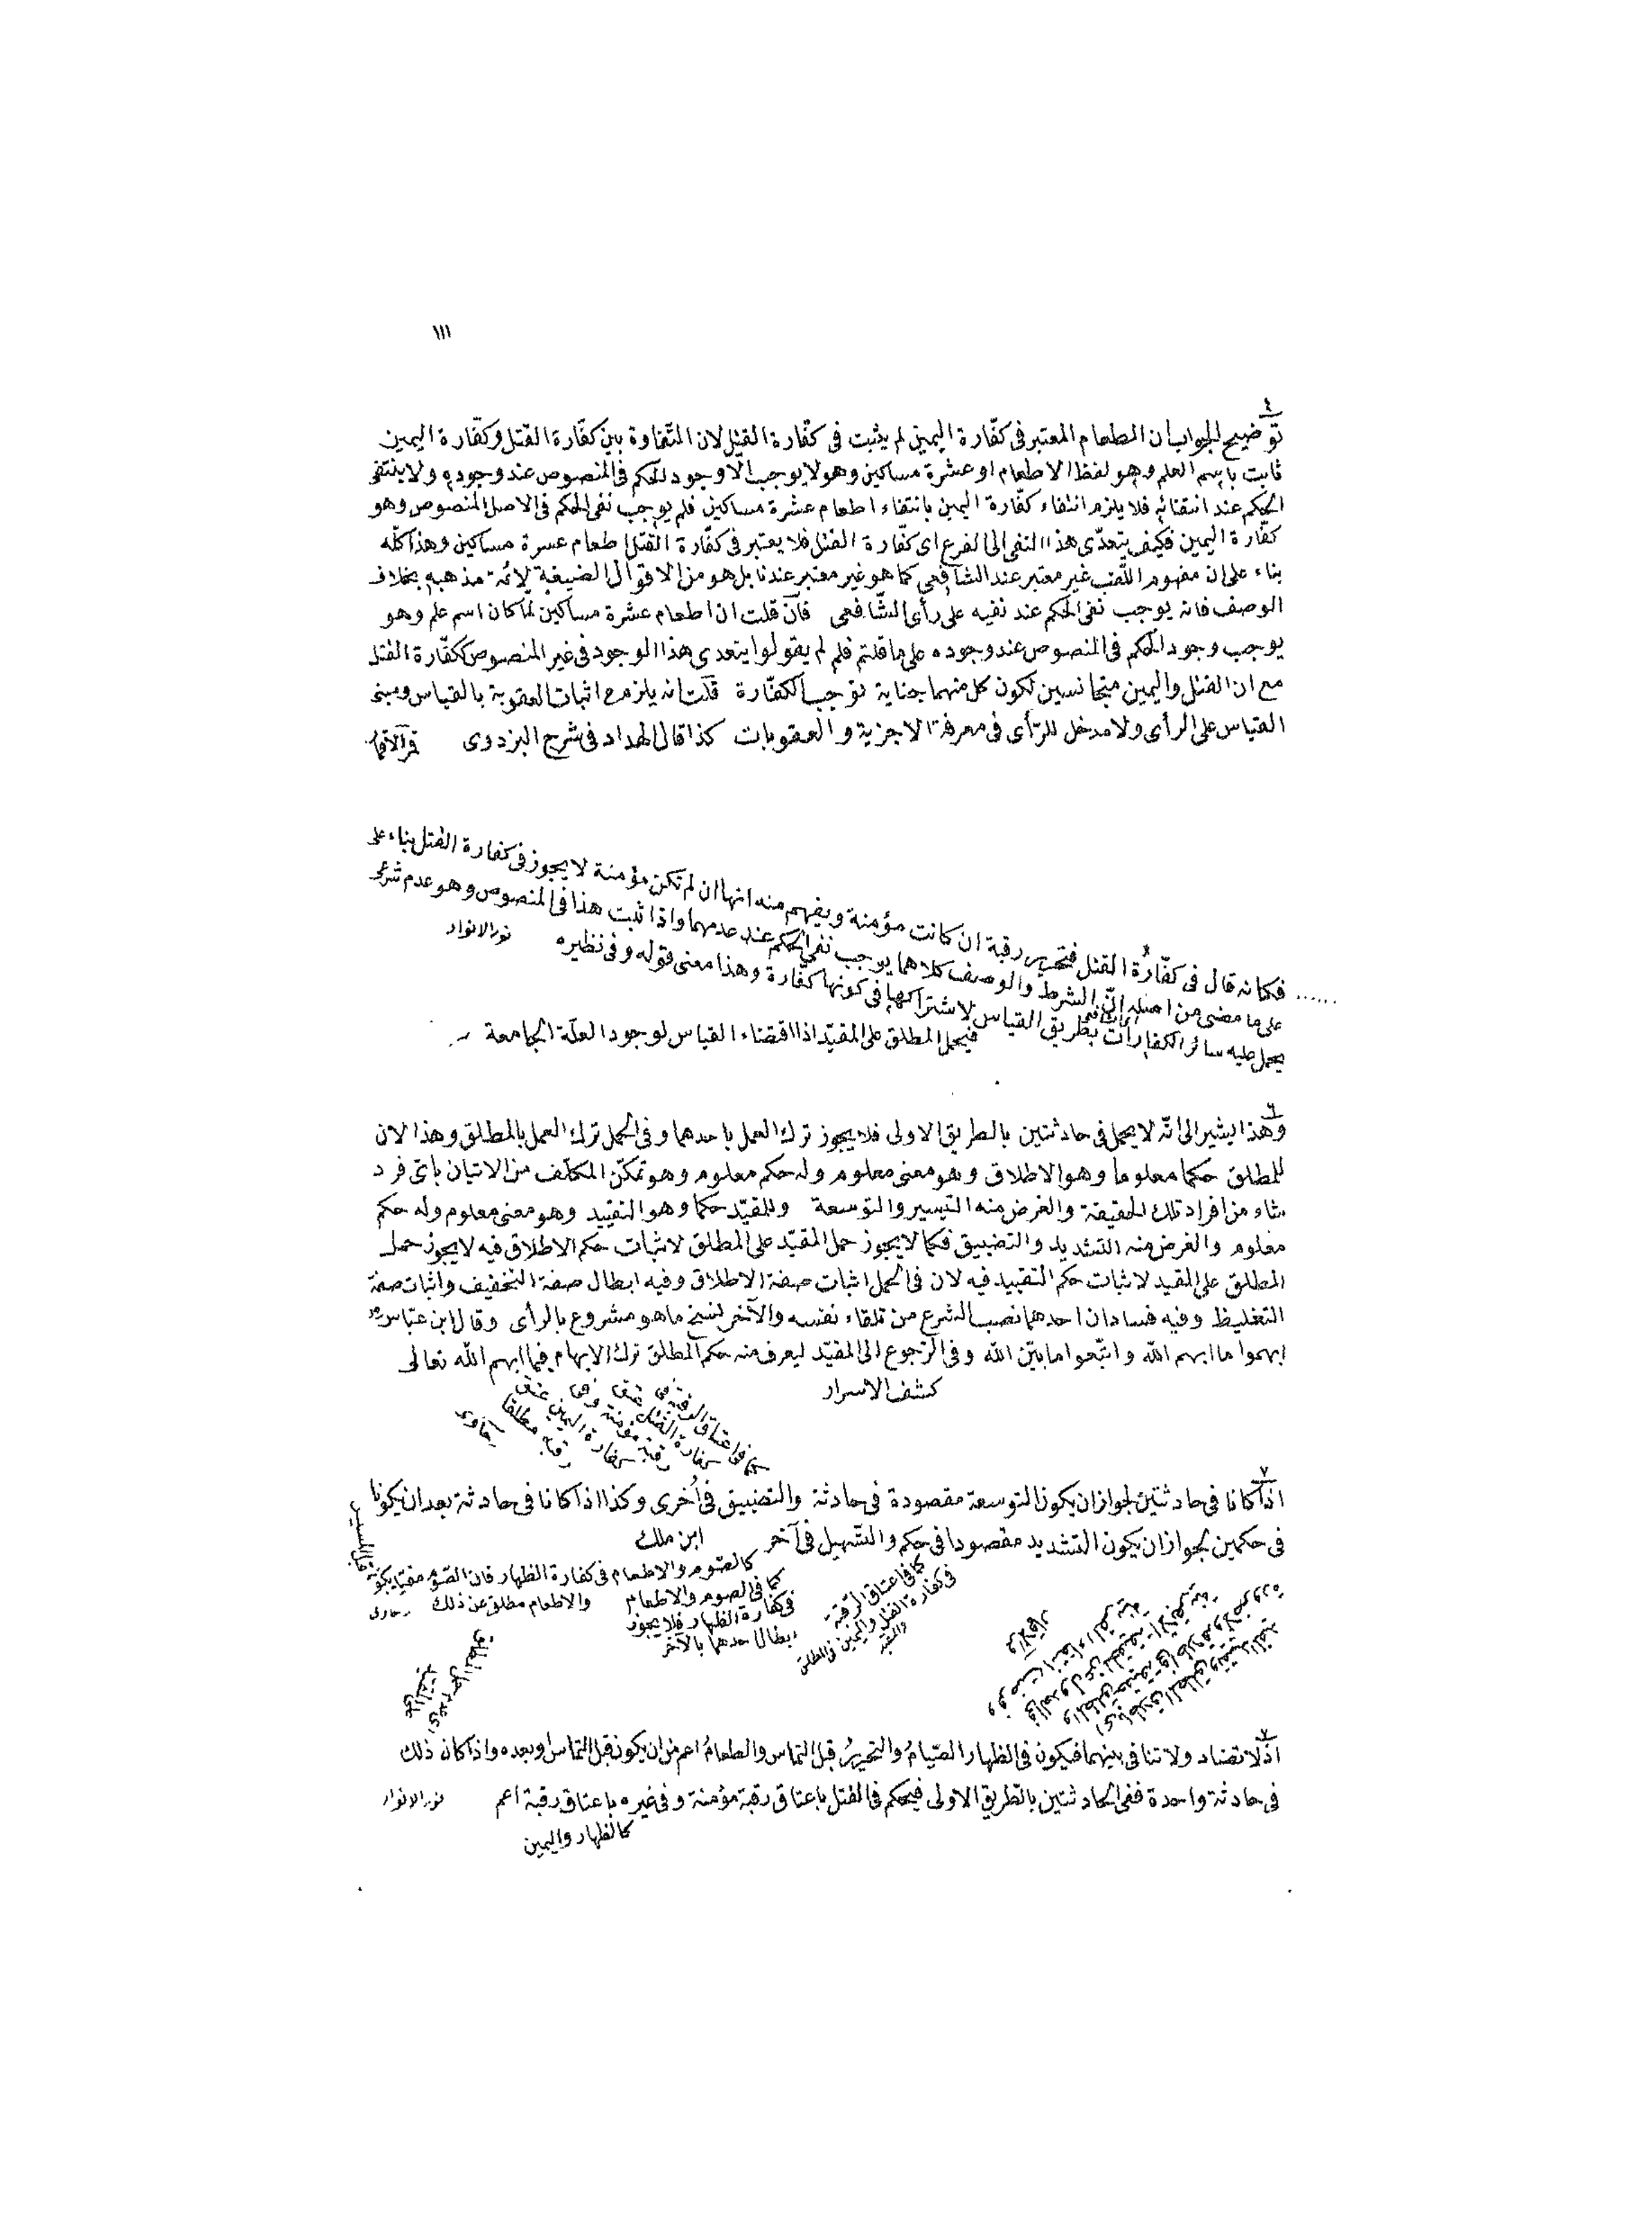 ١١١
٤
توضيح الجواب ان الطعام المعتبر فى كفّارة اليمين لم يثبت فى كفّارة القتل لان التّفاوة بين كفّارة القتل وكفّارة اليمين
ثابت باسم العلم وهو لفظ الاطعام او عشرة مساكين وهو لا يوجب الّا وجود الحكم فى المنصوص عند وجوده ولا ينتفى
الحكم عند انتفائه فلا يلزم انتفاء كفّارة اليمين بانتفاء اطعام عشرة مساكين فلم يوجب نفى الحكم فى الاصل المنصوص وهو
كفّارة اليمين فكيف يتعدّى هذا النفى الى الفرع اى كفّارة القتل فلا يعتبر فى كفّارة القتل اطعام عشرة مساكين وهذا كلّه
بناء على ان مفهوم اللّقب غير معتبر عند الشافعى كما هو غير معتبر عندنا بل هو من الاقوال الضيفة لائمّة مذهبه بخلاف
الوصف فانه يوجب نفى الحكم عند نفيه على رأى الشّافعى فان قلت ان اطعام عشرة مساكين لمّا كان اسم علم وهو
يوجب وجود الحكم فى المنصوص عند وجوده على ما قلتم فلم لم يقولوا يتعدى هذا الوجود فى غير المنصوص ككفّارة القتل
مع ان القتل واليمين متجانسين لكون كل منهما جناية توجب الكفّارة قلت انه يلزم ح اثبات العقوبة بالقياس ومبنى
القياس على الرأى ولا مدخل للرّأى فى معرفة الاجزية والعقوبات كذا قال الهداد فى شرح البزدوى قمر الاقمار
...... فكانه قال فى كفّارة القتل فتحرير رقبة ان كانت مؤمنة ويفهم منه انها ان لم تكن مؤمنة لا يجوز فى كفارة القتل بناء على
على ما مضى من اصله انّ الشرط والوصف كلاهما يوجب نفى الحكم عند عدمهما واذا ثبت هذا فى المنصوص وهو عدم شرعى
يحمل عليه سائر الكفارات بطريق القياس لاشتراكها فى كونها كفّارة وهذا معنى قوله وفى نظيره نور الانوار
فيحمل المطلق على المقيّد اذا اقتضاء القياس لوجود العلّة الجامعة
٦
وهذا يشير الى انّه لا يحمل فى حادثتين بالطريق الاولى فلا يجوز ترك العمل باحدهما وفى الحمل ترك العمل بالمطلق وهذا لان
للمطلق حكما معلوما وهو الاطلاق وهو معنى معلوم وله حكم معلوم وهو تمكّن المكلّف من الاتيان باىّ فرد
شاء من افراد تلك الحقيقة والغرض منه التيسير والتوسعة وللمقيّد حكما وهو التقييد وهو معنى معلوم وله حكم
معلوم والغرض منه التشديد والتضييق فكما لا يجوز حمل المقيّد على المطلق لاثبات حكم الاطلاق فيه لا يجوز حمل
المطلق على المقيد لاثبات حكم التقييد فيه لان فى الحمل اثبات صفة الاطلاق وفيه ابطال صفة التخفيف واثبات صفة
التغليظ وفيه فسادان احدهما نصب الشرع من تلقاء نفسه والآخر نسخ ما هو مشروع بالرأى وقال ابن عبّاس
ابهموا ما ابهم الله واتّبعوا ما بيّن الله وفى الرّجوع الى المقيّد ليعرف منه حكم المطلق ترك الابهام فيما ابهم الله تعالى
كشف الاسرار
٧
اذا كانا فى حادثتين لجواز ان يكون التوسعة مقصودة فى حادثة والتضييق فى أخرى وكذا اذا كانا فى حادثة بعد ان يكونا
فى حكمين لجواز ان يكون التشديد مقصودا فى حكم والتسهيل فى آخر ابن ملك
كالصّوم والاطعام فى كفارة الظهار فان الصّوم مقيّد بكونه قبل المسيس
والاطعام مطلق عن ذلك رهاوى
كما فى الصوم والاطعام
فى كفارة الظهار فلا يجوز
ابطال احدهما بالآخر
كما فى اعتاق الرّقبة
فى كفارة القتل واليمين
٧
اذ لا تضاد ولا تنافى بينهما فيكون فى الظهار الصّيامُ والتحريرُ قبل التماس والطعامُ اعم من ان يكون قبل التماس او بعده واذا كان ذلك
فى حادثة واحدة ففى الحادثتين بالطريق الاولى فيحكم فى القتل باعتاق رقبة مؤمنة وفى غيره باعتاق رقبة اعم نور الانوار
كالظهار واليمين